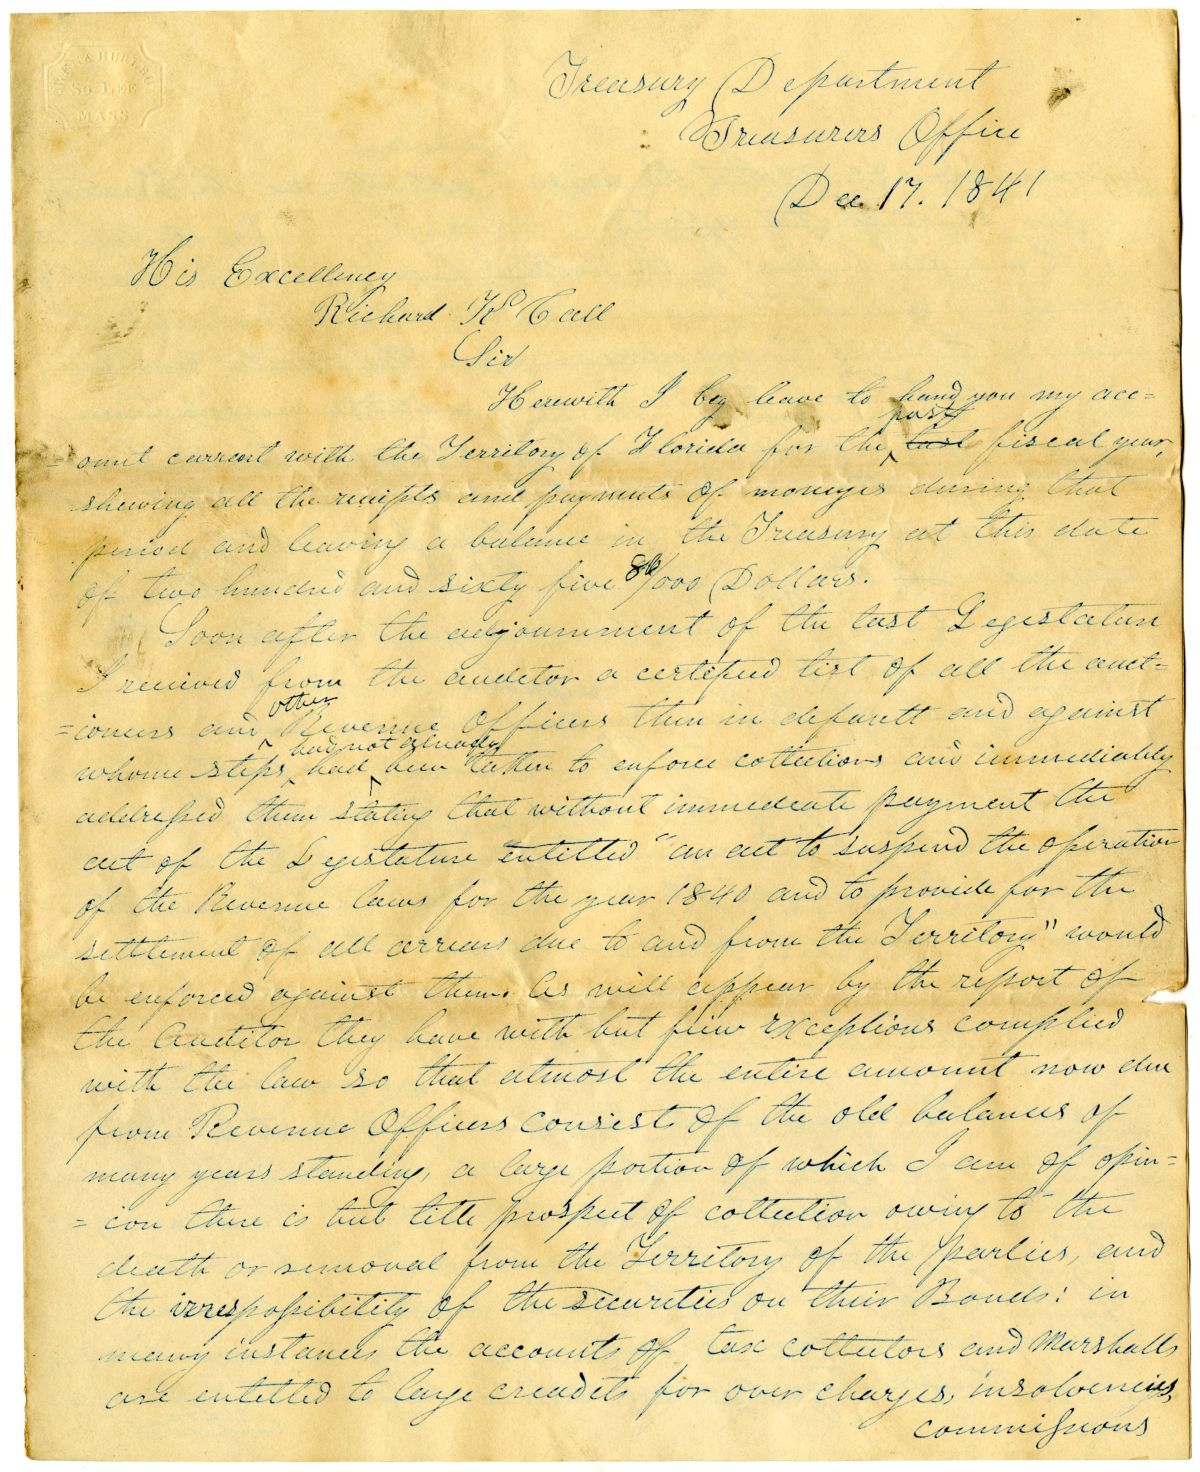 So. LEE
MASS
Treasury Department
Treasurers Office
Dec 17. 1841
His Excellency
Richard K Call
Sir
Herewith I beg leave to hand you my acc=
=ount current with the Territory of Florida for the past last fiscal year,
shewing all the reciepts and payments of moneyes during that
period and leaving a balance in the Treasury at this date
of two hundred and sixty five 86/000 Dollars.
Soon after the adjournment of the last Legislature
I recieved from the auditor a certified list of all the auct=
=ioneers and other Revenue Officers then in default and against
whome steps had not already had been taken to enforce collections and immediably
addressed them stating that without immedeate payment the
act of the Legislature entitled "an act to suspend the operation
of the Revenue laws for the year 1840 and to provide for the
settlement of all arrears due to and from the Territory" would
be enforced against them. As will appear by the report of
the Auditor they have with but fiew exceptions complied
with the law so that almost the entire amount now due
from Revenue Officers consist of the old balances of
many years standing, a large portion of which I am of opin=
=ion there is but little prospect of collection owing to the
death or removal from the Territory of the parties, and
the irresposibility of the securities on their Bonds: in
many instances the accounts of tax collectors and Marshalls
are entitled to large creadits for over charges, insolvencies,
commissions